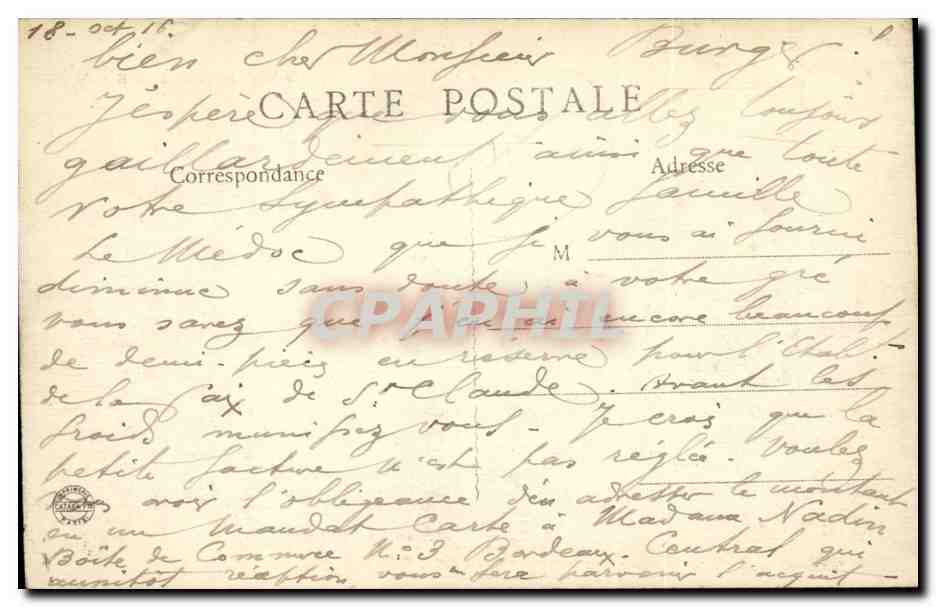 18 - oct 16.
bien cher Monsieur Burger.
CARTE POSTALE
J'espère que vous allez toujours
gaillardement ainsi que toute
Correspondance
Adresse
votre sympathique famille
Le Médoc que je vous ai fourni
M
diminue sans doute, à votre gré
CPAPHIL
vous savez que j'en ai encore beaucoup
de demi-pièces en réserve pour l'Etabl.
de la Paix de St Claude. Avant les
froids munissez vous - Je crois que la
petite facture n'est pas réglée. Voulez
vous avoir l'obligeance d'en adresser le montant
en un mandat carte à Madame Nadin
Boîte de Commerce No 3 Bordeaux. Central qui
aussitôt réception vous fera parvenir l'acquit -